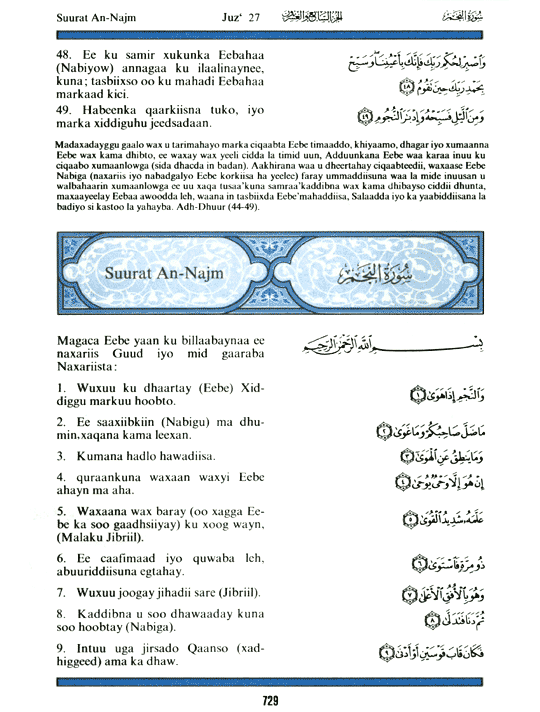 Suurat An-Najm Juz' 27 الجزء السابع والعشرون سورة النجم
48. Ee ku samir xukunka Eebahaa
(Nabiyow) annagaa ku ilaalinaynee,
kuna; tasbiixso oo ku mahadi Eebahaa
markaad kici.
وَاصْبِرْ لِحُكْمِ رَبِّكَ فَإِنَّكَ بِأَعْيُنِنَا وَسَبِّحْ
بِحَمْدِ رَبِّكَ حِينَ تَقُومُ ٤٨
49. Habeenka qaarkiisna tuko, iyo
marka xiddiguhu jeedsadaan.
وَمِنَ اللَّيْلِ فَسَبِّحْهُ وَإِدْبَارَ النُّجُومِ ٤٩
Madaxadayggu gaalo wax u tarimahayo marka ciqaabta Eebe timaaddo, khiyaamo, dhagar iyo xumaanna
Eebe wax kama dhibto, ee waxay wax yeeli cidda la timid uun, Adduunkana Eebe waa karaa inuu ku
ciqaabo xumaanlowga (sida dhacda in badan). Aakhirana waa u dheertahay ciqaabteedii, waxaase Eebe
Nabiga (naxariis iyo nabadgalyo Eebe korkiisa ha yeelee) faray ummaddiisuna waa la mide inuusan u
walbahaarin xumaanlowga ee uu xaqa tusaa'kuna samraa'kaddibna wax kama dhibayso ciddii dhunta,
maxaayeelay Eebaa awoodda leh, waana in tasbiixda Eebe'mahaddiisa, Salaadda iyo ka yaabiddiisana la
badiyo si kastoo la yahayba. Adh-Dhuur (44-49).
Suurat An-Najm سورة النجم
Magaca Eebe yaan ku billaabaynaa ee
naxariis Guud iyo mid gaaraba
Naxariista:
بِسْمِ اللَّهِ الرَّحْمَٰنِ الرَّحِيمِ
1. Wuxuu ku dhaartay (Eebe) Xid-
diggu markuu hoobto.
وَالنَّجْمِ إِذَا هَوَىٰ ١
2. Ee saaxiibkiin (Nabigu) ma dhu-
min,xaqana kama leexan.
مَا ضَلَّ صَاحِبُكُمْ وَمَا غَوَىٰ ٢
3. Kumana hadlo hawadiisa.
وَمَا يَنطِقُ عَنِ الْهَوَىٰ ٣
4. quraankuna waxaan waxyi Eebe
ahayn ma aha.
إِنْ هُوَ إِلَّا وَحْيٌ يُوحَىٰ ٤
5. Waxaana wax baray (oo xagga Ee-
be ka soo gaadhsiiyay) ku xoog wayn,
(Malaku Jibriil).
عَلَّمَهُ شَدِيدُ الْقُوَىٰ ٥
6. Ee caafimaad iyo quwaba leh,
abuuriddiisuna egtahay.
ذُو مِرَّةٍ فَاسْتَوَىٰ ٦
7. Wuxuu joogay jihadii sare (Jibriil).
وَهُوَ بِالْأُفُقِ الْأَعْلَىٰ ٧
8. Kaddibna u soo dhawaaday kuna
soo hoobtay (Nabiga).
ثُمَّ دَنَا فَتَدَلَّىٰ ٨
9. Intuu uga jirsado Qaanso (xad-
higgeed) ama ka dhaw.
فَكَانَ قَابَ قَوْسَيْنِ أَوْ أَدْنَىٰ ٩
729